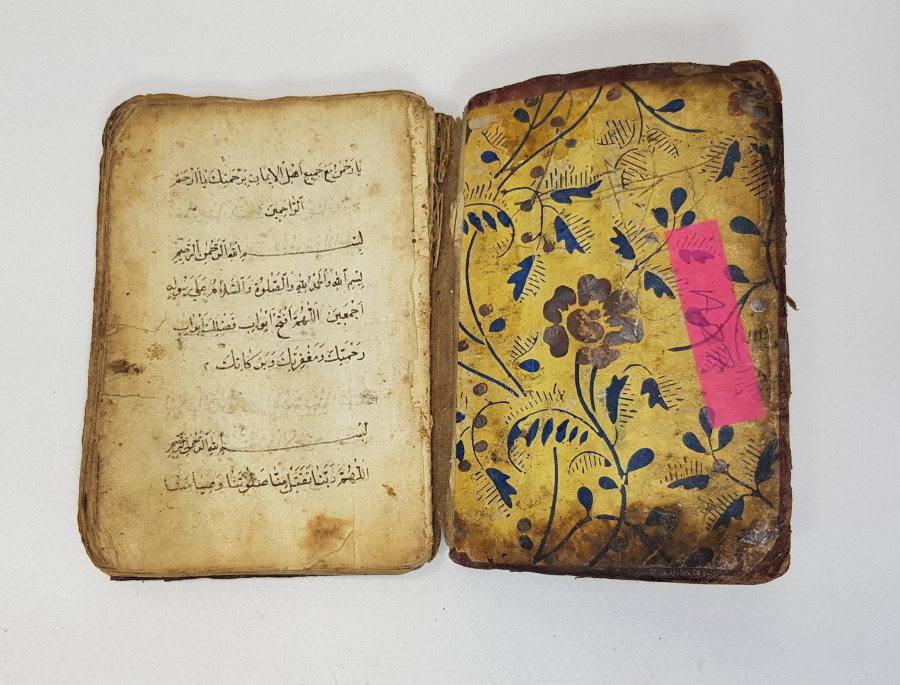 يَا رَحْمٰنُ مَعَ جَمِيعِ اَهْلِ الْاِيمَانِ بِرَحْمَتِكَ يَا اَرْحَمَ
الرَّاحِمِينَ
بِسْمِ اللهِ الرَّحْمٰنِ الرَّحِيمِ
بِسْمِ اللهِ وَالْحَمْدُ لِلّٰهِ وَالصَّلٰوةُ وَالسَّلَامُ عَلٰى رَسُولِهِ
اَجْمَعِينَ اَللّٰهُمَّ افْتَحْ اَبْوَابَ فَضْلِكَ اَبْوَابَ
رَحْمَتِكَ وَمَغْفِرَتِكَ
بِسْمِ اللهِ الرَّحْمٰنِ الرَّحِيمِ
اَللّٰهُمَّ رَبَّنَا تَقَبَّلْ مِنَّا صَلٰوتَنَا وَصِيَامَنَا